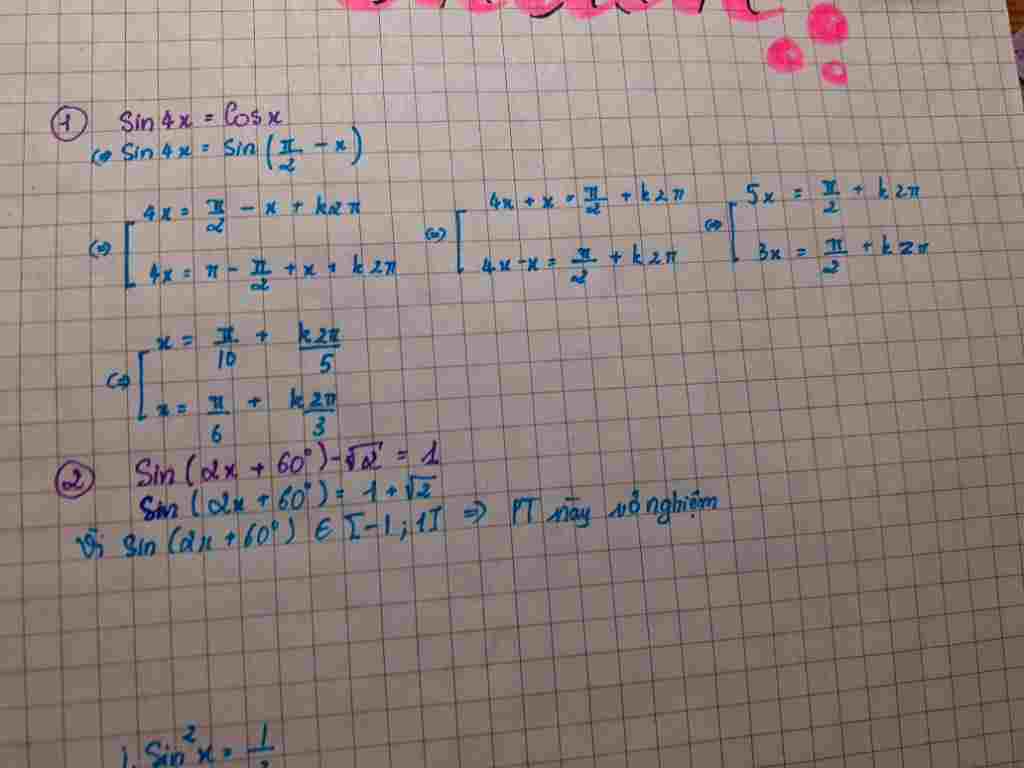 1 Sin 4x = Cos x
<=> Sin 4x = Sin (π/2 - x)
<=> [ 4x = π/2 - x + k2π <=> [ 4x + x = π/2 + k2π <=> [ 5x = π/2 + k2π
4x = π - π/2 + x + k2π 4x - x = π/2 + k2π 3x = π/2 + k2π
<=> [ x = π/10 + k2π/5
x = π/6 + k2π/3
2 Sin (2x + 60°) - √2 = 1
Sin (2x + 60°) = 1 + √2
Vì Sin (2x + 60°) ∈ [-1; 1] => PT này vô nghiệm
Sin²x = 1